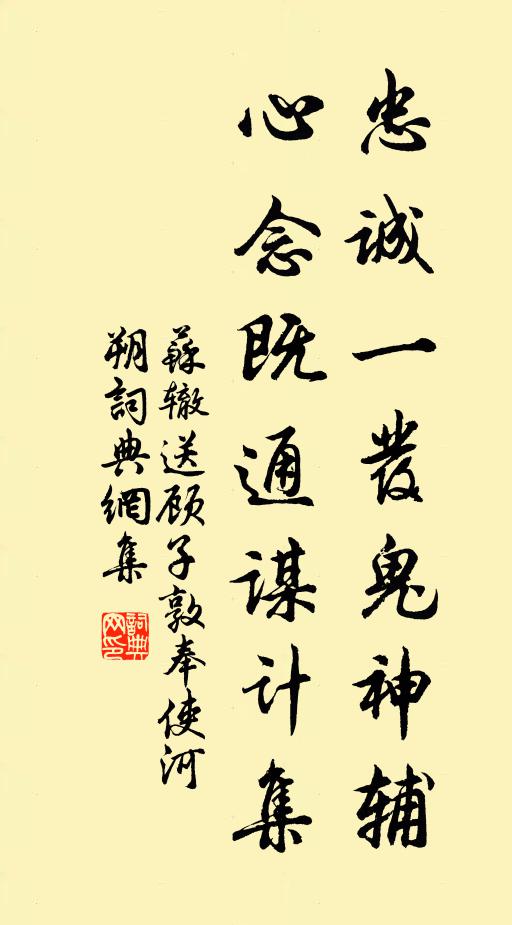 忠诚一發鬼神辅
心念既通谋计集
蘇辙送顾子敦奉使河
朔詞典網集
詞典
网印